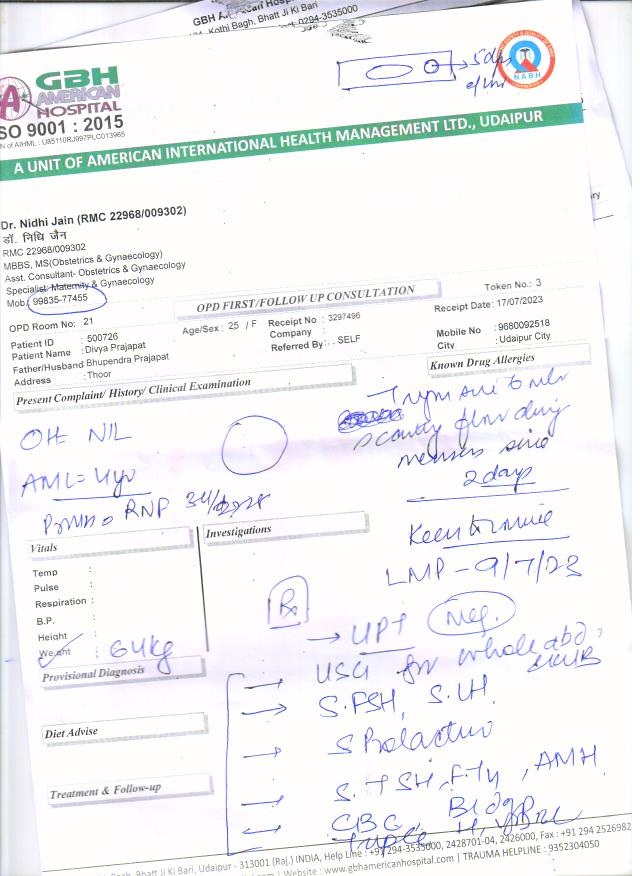 GBH American Hosp
101, Kothi Bagh, Bhatt Ji Ki Bari
0294-3535000
5 dps
GBH
AMERICAN
HOSPITAL
NABH
SO 9001 : 2015
N of AIHML : U85110RJ997PLC013965
A UNIT OF AMERICAN INTERNATIONAL HEALTH MANAGEMENT LTD., UDAIPUR
Dr. Nidhi Jain (RMC 22968/009302)
डॉ. निधि जैन
RMC 22968/009302
MBBS, MS(Obstetrics & Gynaecology)
Asst. Consultant- Obstetrics & Gynaecology
Specialist- Maternity & Gynaecology
Mob. 99835-77455
OPD FIRST/FOLLOW UP CONSULTATION
Token No.: 3
OPD Room No: 21
Age/Sex : 25 / F
Receipt No : 3297496
Receipt Date: 17/07/2023
Patient ID : 500726
Company :
Mobile No : 9680092518
Patient Name : Divya Prajapat
Referred By : . SELF
City : Udaipur City
Father/Husband Bhupendra Prajapat
Address : Thoor
Known Drug Allergies
Present Complaint/ History/ Clinical Examination
scanty flow during
menses since
2 days
OH- NIL
AML = 4yr
RNP
Keen to
LMP - 9/7/23
Vitals
Investigations
Temp :
Pulse :
Respiration :
B.P. :
Height :
Weight : 64kg
Rx
→ UPT Neg.
→ USG for whole abd,
→ S.FSH, S.LH
→ S Prolactin
→ S.TSH, FT4, AMH
→ CBC, Bldgp
Triple H,
Provisional Diagnosis
Diet Advise
Treatment & Follow-up
Bagh, Bhatt Ji Ki Bari, Udaipur - 313001 (Raj.) INDIA, Help Line : +91 294-3535000, 2428701-04, 2426000, Fax : +91 294 2526982
| Website : www.gbhamericanhospital.com | TRAUMA HELPLINE : 9352304050